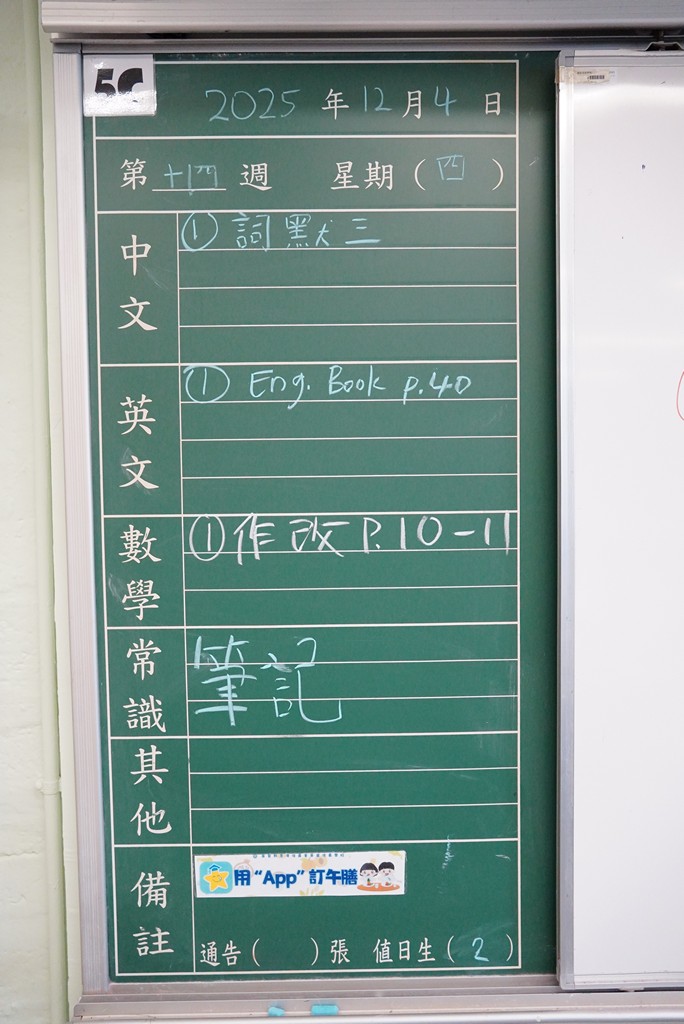 5C
2025 年 12 月 4 日
第 十四 週 星期 ( 四 )
中文
① 詞默三
英文
① Eng. Book p.40
數學
① 作改 P.10-11
常識
筆記
其他
備註
用 “App” 訂午膳
通告 ( ) 張 值日生 ( 2 )